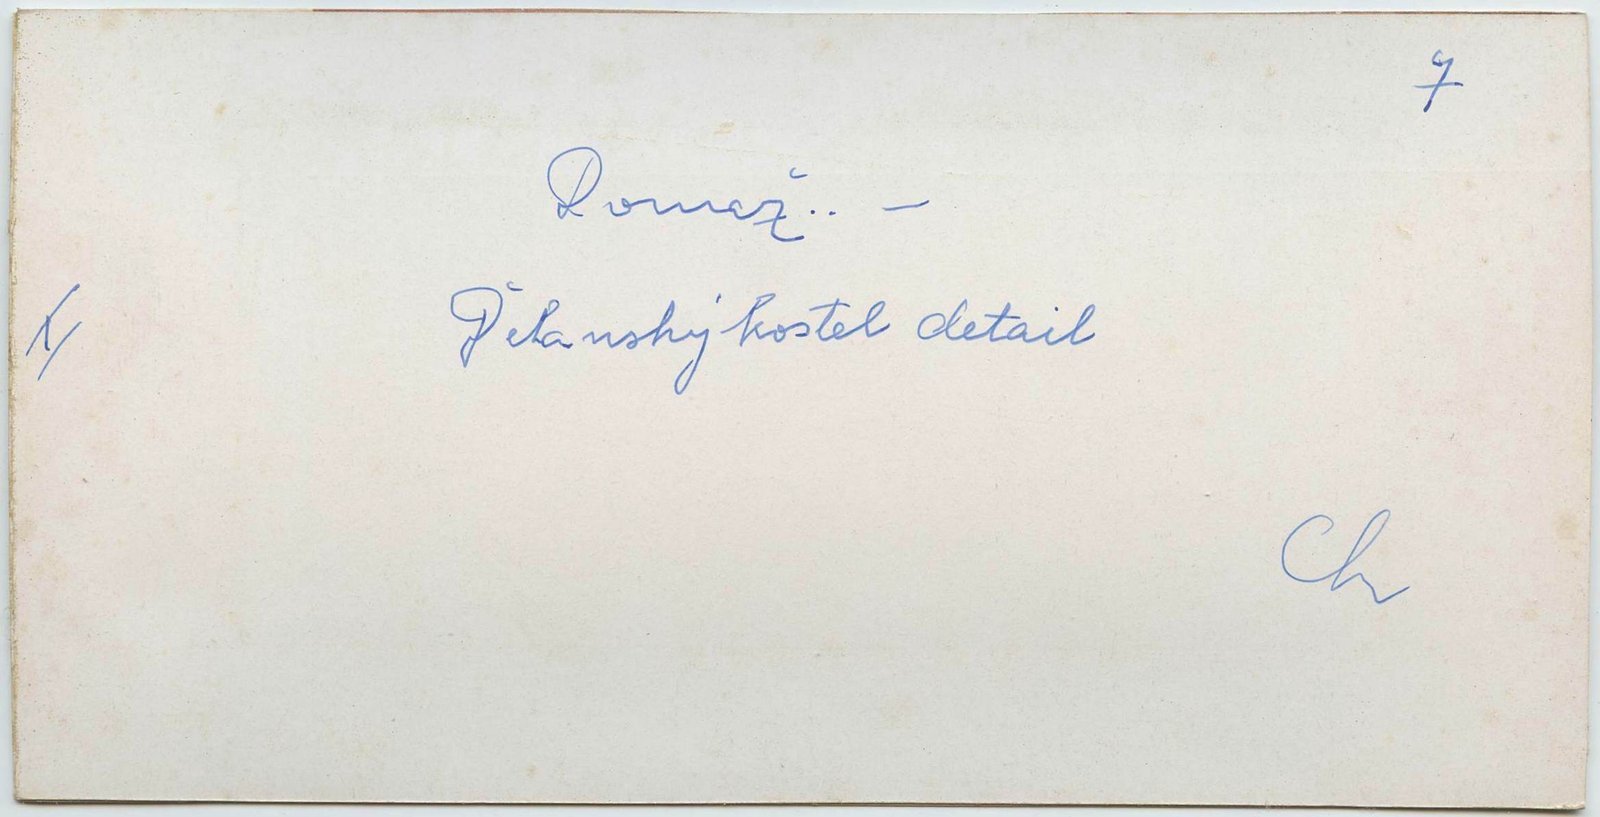 7
Domaž.. –
Děkanský kostel detail
Ch